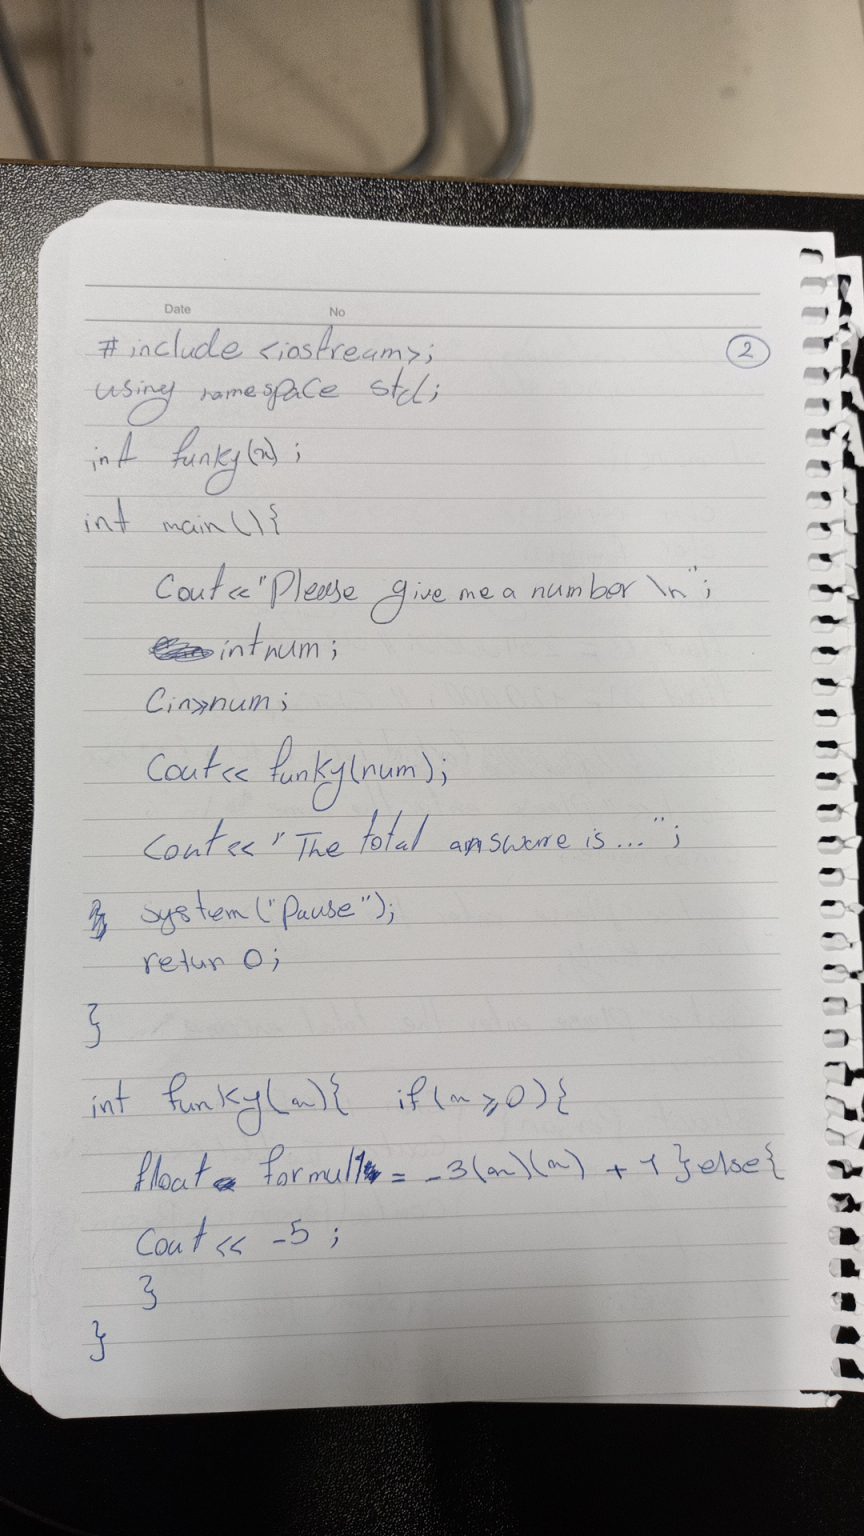 Date No
#include <iostream>;
2
using namespace std;
int funky(n);
int main(){
Cout<<"Please give me a number \n";
int num;
Cin>>num;
Cout<< funky(num);
Cout<< "The total answere is...";
system("Pause");
retur 0;
}
int funky(n){ if(n>=0){
float formul = -3(n)(n) + 1 }else{
Cout << -5 ;
}
}